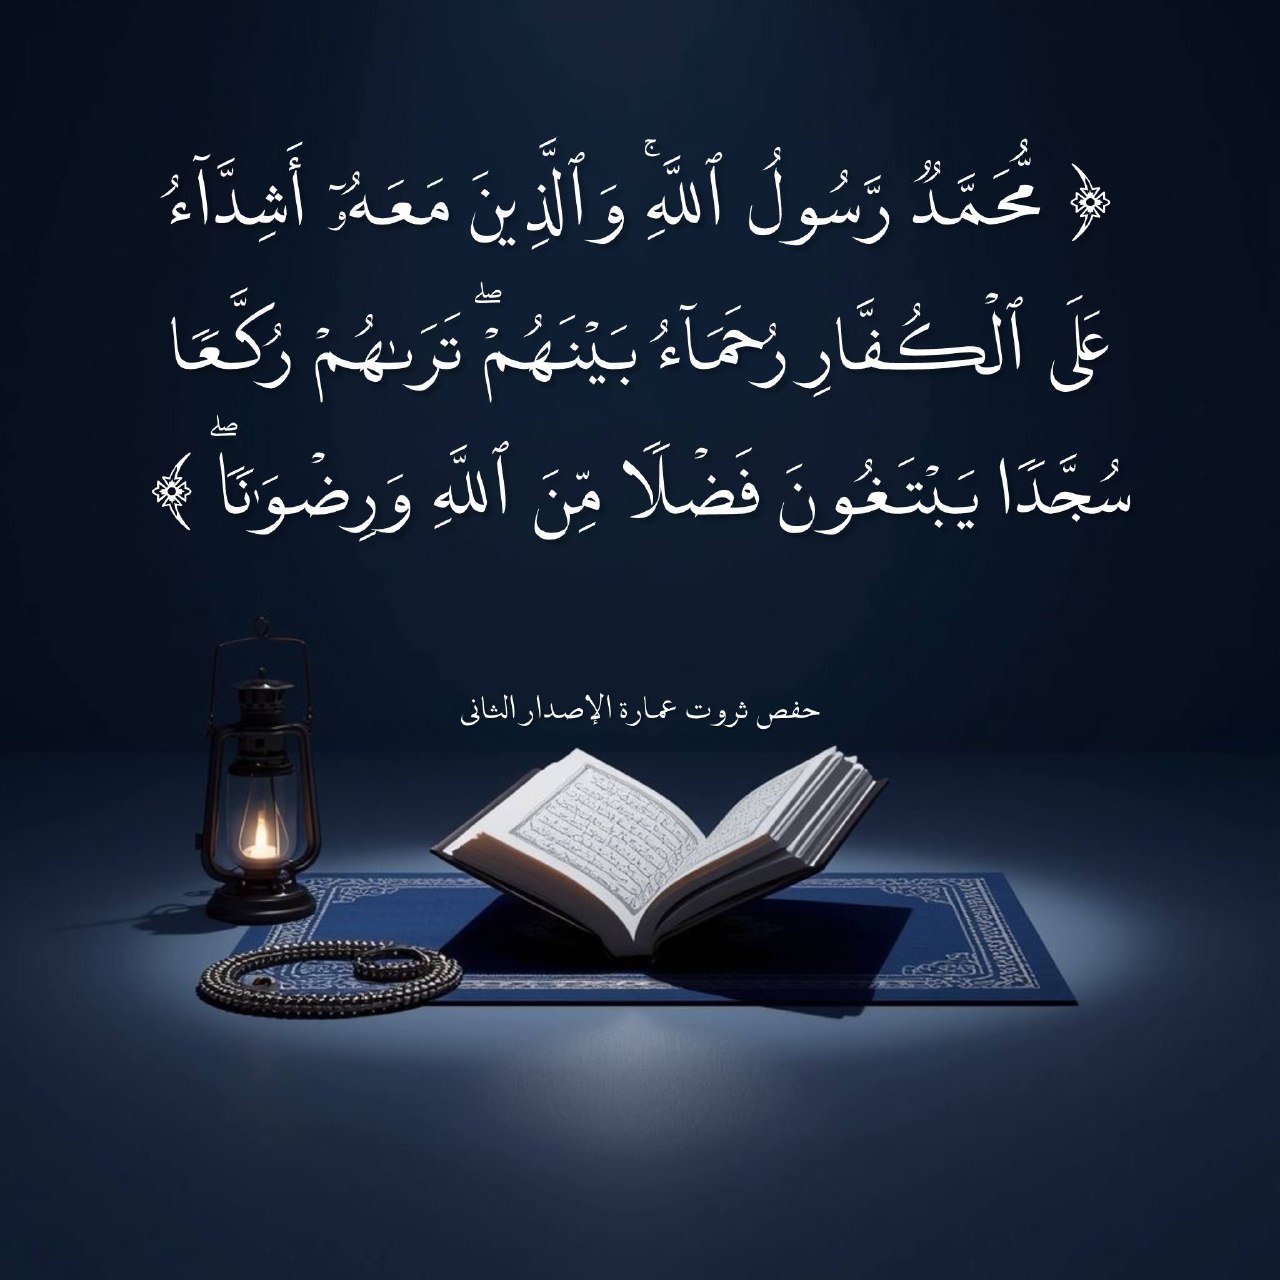 ﴿ مُّحَمَّدٌ رَّسُولُ ٱللَّهِۚ وَٱلَّذِينَ مَعَهُۥٓ أَشِدَّآءُ
عَلَى ٱلْكُفَّارِ رُحَمَآءُ بَيْنَهُمْۖ تَرَىٰهُمْ رُكَّعًا
سُجَّدًا يَبْتَغُونَ فَضْلًا مِّنَ ٱللَّهِ وَرِضْوَٰنًاۖ ﴾
حفص ثروت عمارة الإصدار الثانى